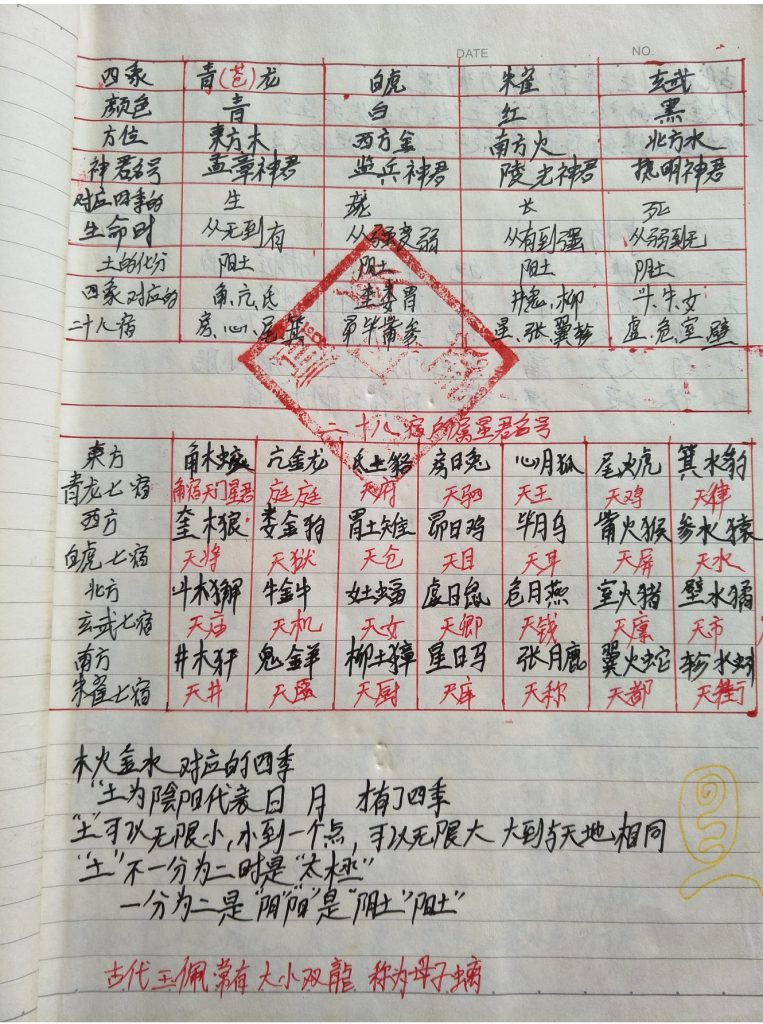 DATE NO.
四象 青(苍)龙 白虎 朱雀 玄武
颜色 青 白 红 黑
方位 東方木 西方金 南方火 北方水
神君名号 孟章神君 监兵神君 陵光神君 执明神君
对应四季的 生 长 死
生命时 从无到有 从强变弱 从有到强 从弱到无
土的化分 阳土 阴土 阳土 阴土
四象对应的 角、亢、氐 奎娄胃 井鬼、柳 斗、牛、女
二十八宿 房、心、尾箕 昴毕觜参 星、张、翼轸 虚、危、室、壁
二十八宿的属星君名号
東方 角木蛟 亢金龙 氐土貉 房日兔 心月狐 尾火虎 箕水豹
青龙七宿 角宿天门星君 庭庭 天府 天驷 天王 天鸡 天律
西方 奎木狼 娄金狗 胃土雉 昴日鸡 毕月乌 觜火猴 参水猿
白虎七宿 天将 天狱 天仓 天目 天耳 天屏 天水
北方 斗木獬 牛金牛 女土蝠 虚日鼠 危月燕 室火猪 壁水㺄
玄武七宿 天庙 天机 天女 天卿 天钱 天廪 天市
南方 井木犴 鬼金羊 柳土獐 星日马 张月鹿 翼火蛇 轸水蚓
朱雀七宿 天井 天匮 天厨 天库 天称 天都 天街
木火金水 对应的四季
"土为陰阳代表 日 月 才有了四季
"土"可以无限小,小到一个点,可以无限大 大到与天地相同
"土"不一分为二时是"太极"
一分为二是"阴""阳"是"阴土""阳土"
古代玉佩常有大小双龍 称为母子螭